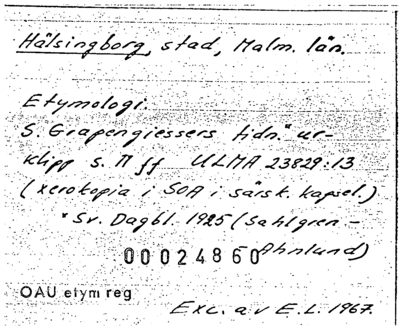 Hälsingborg, stad, Malm. län.
Etymologi.
S. Grapengiessers tidn.* ur-
klipp s. 11 ff ULMA 23829:13
(xerokopia i SOA i särsk. kapsel.)
* Sv. Dagbl. 1925 (Sahlgren -
- Ahnlund)
00024860
OAU etym reg
Exc. av E.L. 1967.